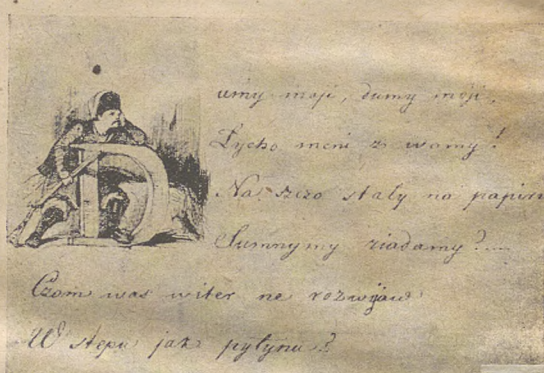 Dumy moji, dumy moji,
Lycho meni z wamy!
Na szczo staly na papiri
Sumnymy riadamy?....
Czom was witer ne rozwijaw
W stepu jak pyłynu?